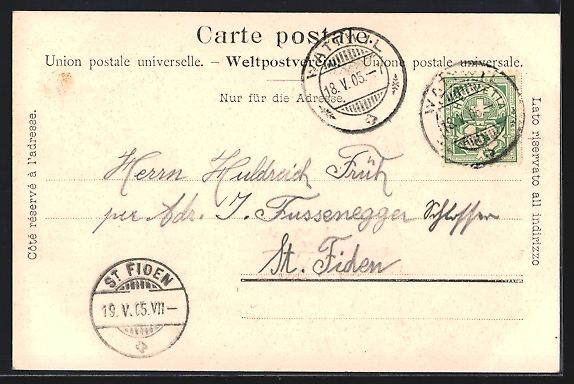 Carte postale.
WATTWIL
18.V.05.–7
Union postale universelle. – Weltpostverein. Unione postale universale.
Nur für die Adresse.
Côté réservé à l'adresse.
Lato riservato all indirizzo
Herrn Huldreich Früh
per Adr. J. Fussenegger Schlosser
St. Fiden
ST FIDEN
19.V.05.VII–